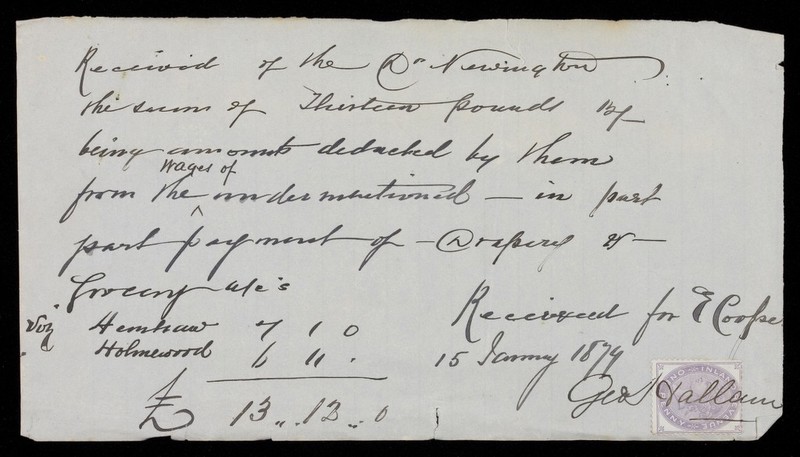 Received of the Drs Newington
the sum of Thirteen pounds 12/-
being amounts deducted by them
wages of
from the undermentioned - in part
part payment of - Drapery & -
Grocery a/c's
Viz Henshaw 7 1 0
Holmewood 6 11 .
£ 13 .. 12 .. 0
Received for E Cooper
15 January 1879
Geo Hallam
INLAND REVENUE